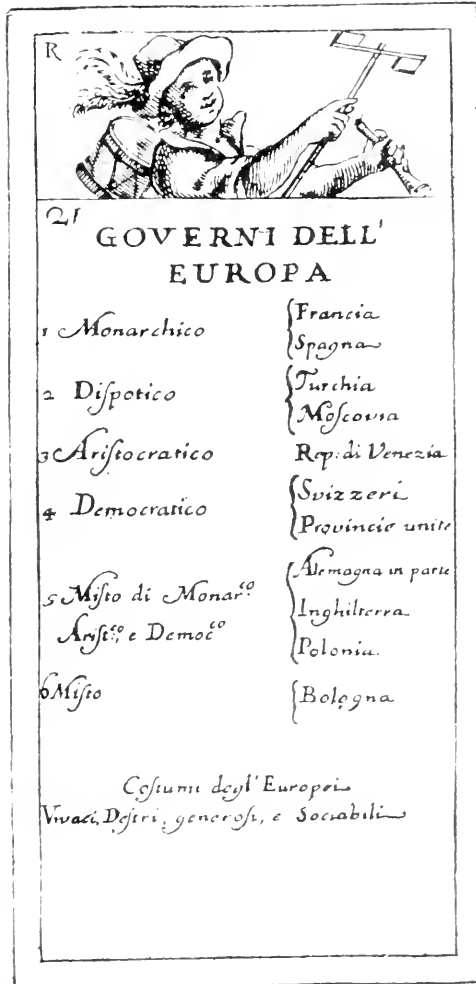 R
21
GOVERNI DELL'
EUROPA
1 Monarchico
Francia
Spagna
2 Diſpotico
Turchia
Moſcovia
3 Ariſtocratico Rep: di Venezia
4 Democratico
Svizzeri
Provincie unite
5 Miſto di Monar.co
Ariſt.co, e Democ.co
Alemagna in parte
Inghilterra
Polonia.
6 Miſto
Bologna
Coſtumi degl' Europei
Vivaci, Deſtri, generoſi, e Sociabili